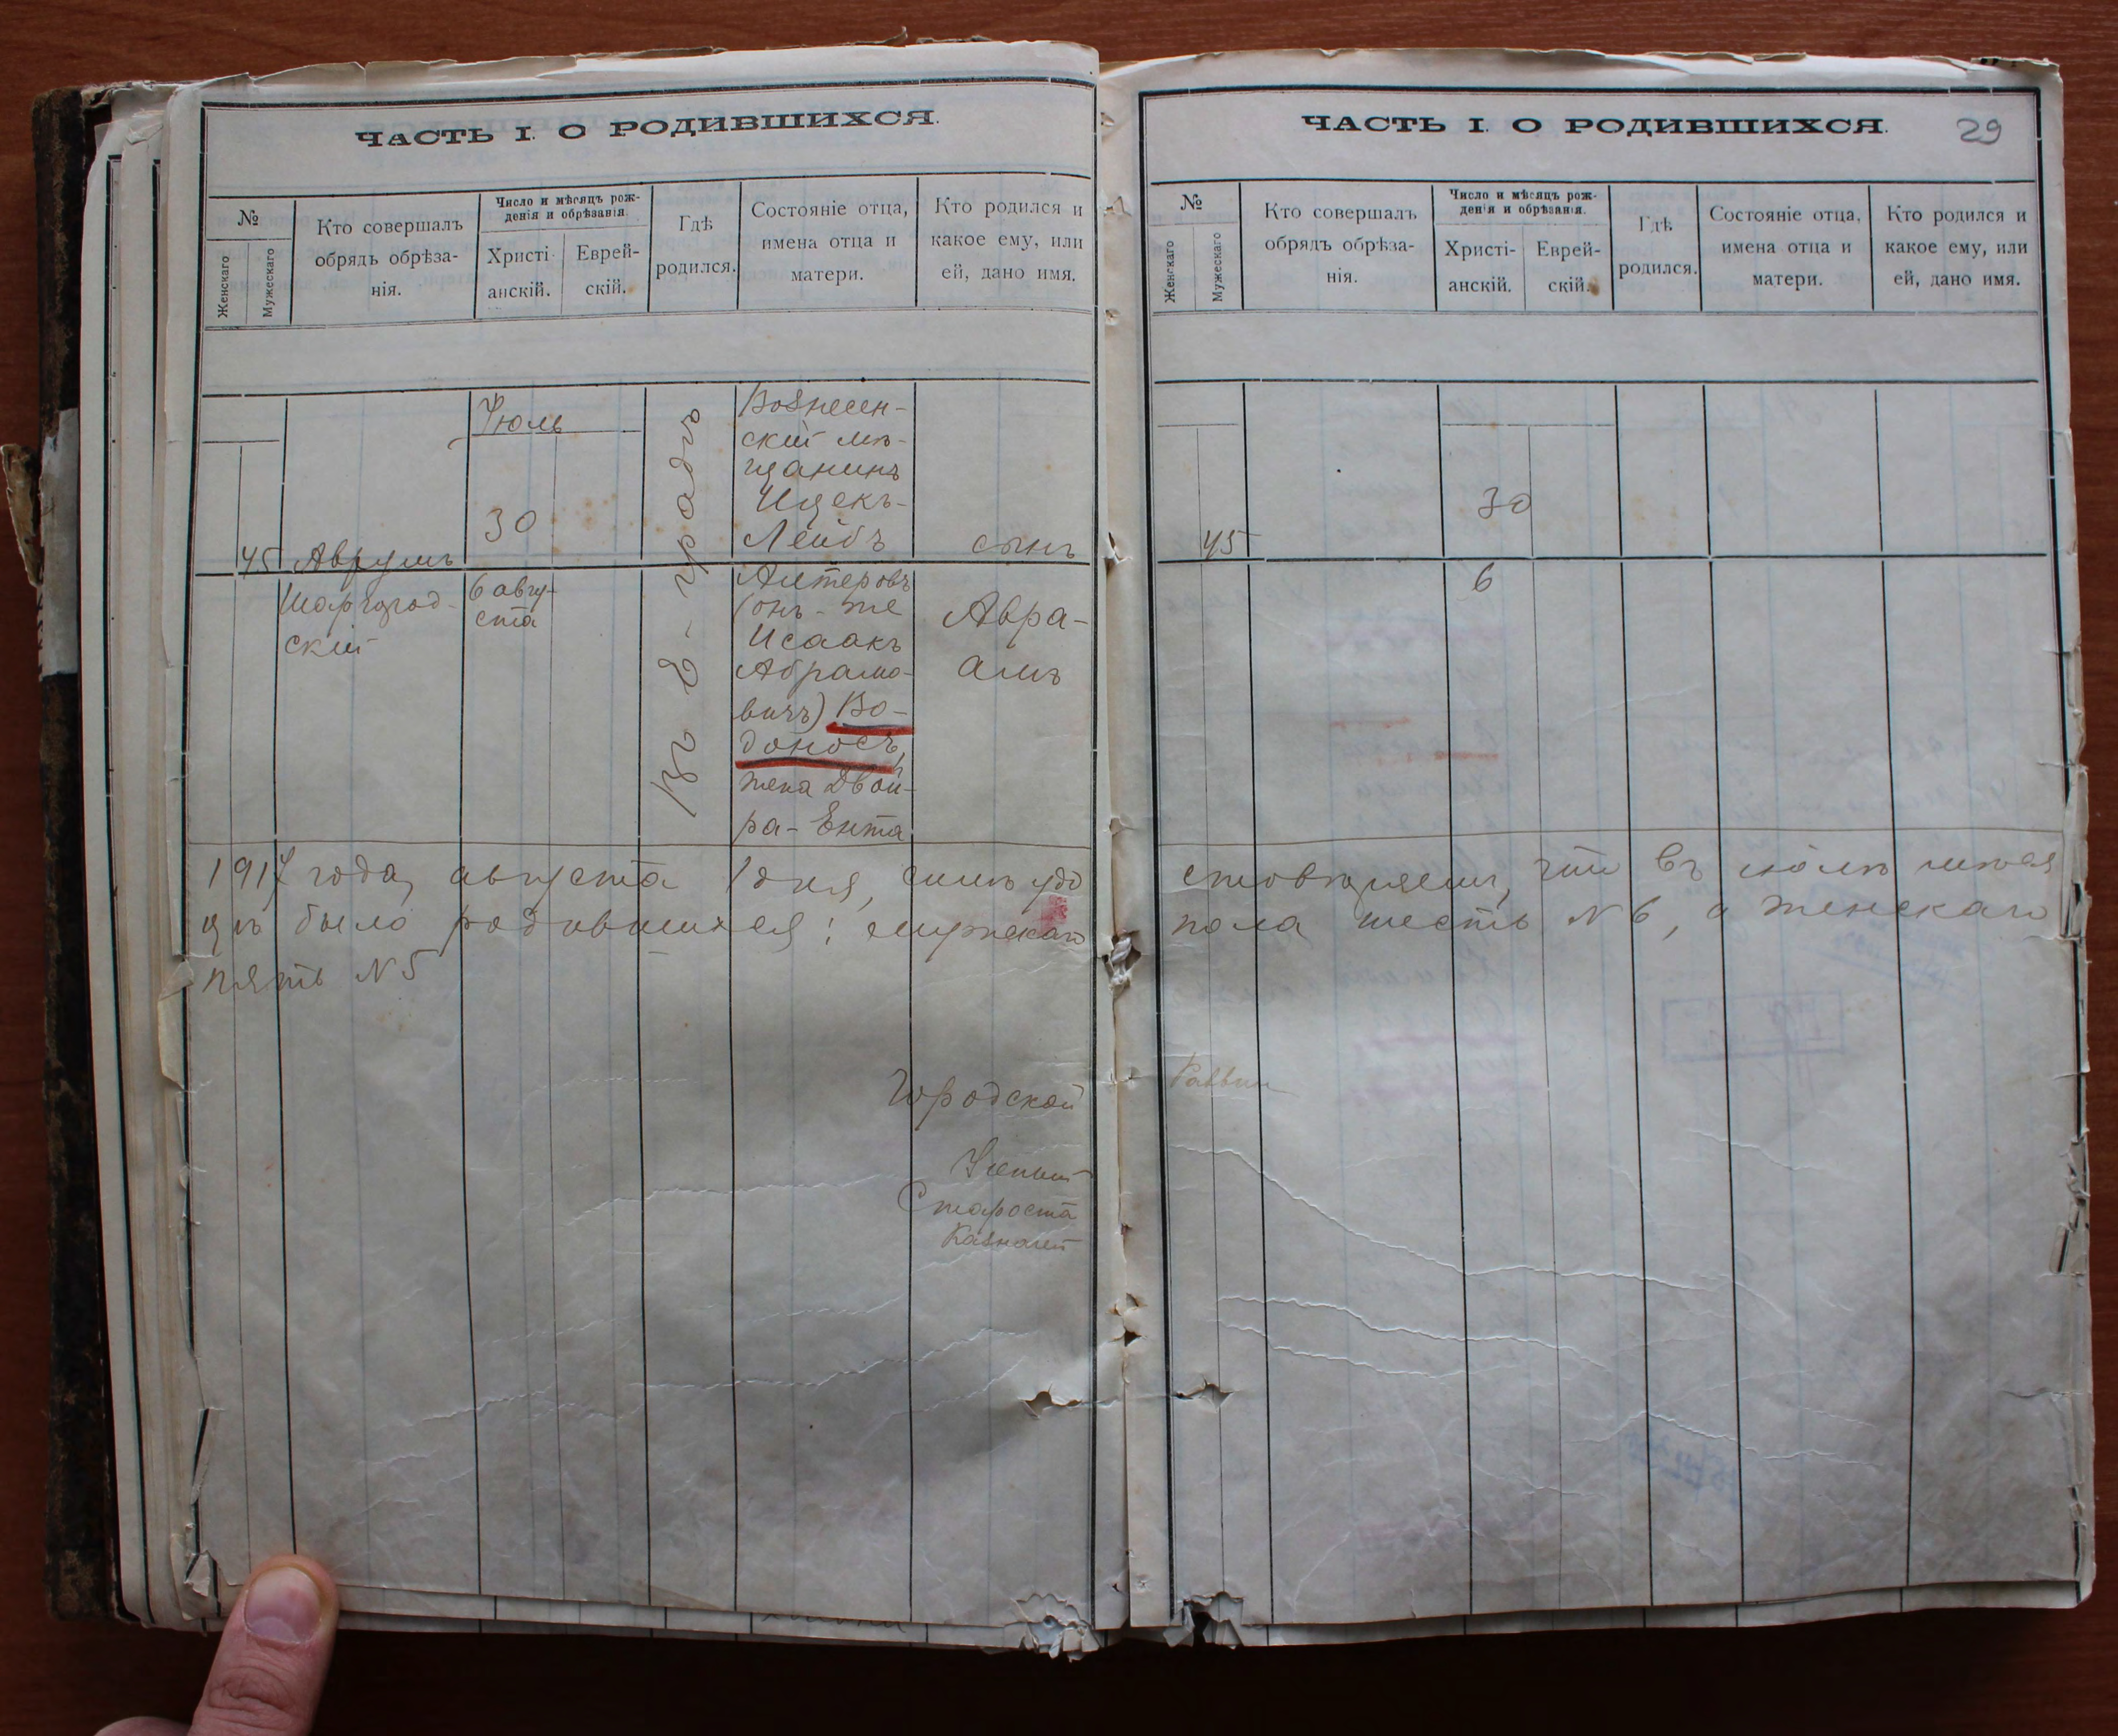 ЧАСТЬ I. О РОДИВШИХСЯ.
№
Женскаго
Мужескаго
Кто совершалъ
обрядъ обрѣза-
нія.
Число и мѣсяцъ рож-
денія и обрѣзанія.
Христі-
анскій.
Еврей-
скій.
Гдѣ
родился.
Состояніе отца,
имена отца и
матери.
Кто родился и
какое ему, или
ей, дано имя.
45
Аврумъ
Шаргород-
скій
Іюль
30
6 авгу-
ста
Въ Е-градѣ
Вознесен-
скій мѣ-
щанинъ
Ицекъ-
Лейбъ
Алтеровъ
(онъ-же
Исаакъ
Абрамо-
вичъ) Во-
доносъ,
жена Двой-
ра-Ента
сынъ
Авра-
амъ
1917 года, августа 1 дня, симъ удо
цѣ было родившихся: мужскаго
пять N 5
Городской
Ученый
Староста
Казначей
ЧАСТЬ I. О РОДИВШИХСЯ.
29
№
Женскаго
Мужескаго
Кто совершалъ
обрядъ обрѣза-
нія.
Число и мѣсяцъ рож-
денія и обрѣзанія.
Христі-
анскій.
Еврей-
скій.
Гдѣ
родился.
Состояніе отца,
имена отца и
матери.
Кто родился и
какое ему, или
ей, дано имя.
45
30
6
стовѣряемъ, что въ іюлѣ мѣся
пола шесть N 6, а женскаго
Раввин